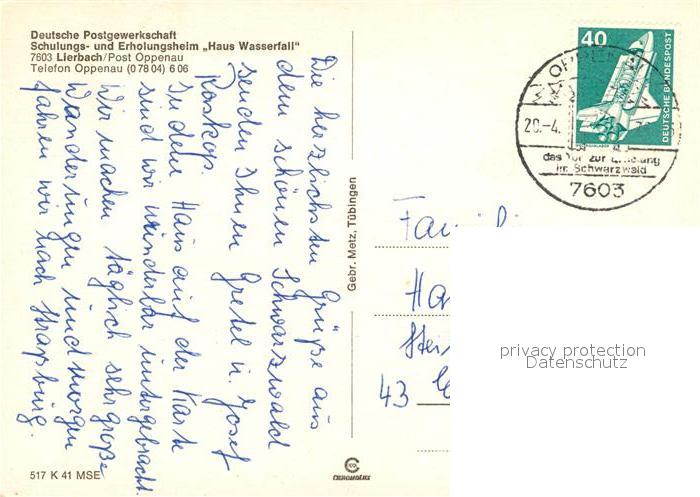 Deutsche Postgewerkschaft
Schulungs- und Erholungsheim „Haus Wasserfall"
7603 Lierbach/Post Oppenau
Telefon Oppenau (0 78 04) 6 06
Die herzlichsten Grüße aus
dem schönen Schwarzwald
senden Ihnen Gretel u. Josef
Roskop.
In dem Haus auf der Karte
sind wir wunderbar untergebracht.
Wir machen täglich sehr große
Wanderungen und morgen
fahren wir nach Straßburg.
517 K 41 MSE
Gebr. Metz, Tübingen
CEKOMOLUX
40
DEUTSCHE BUNDESPOST
20.-4.
das Tor zur Erholung
im Schwarzwald
7603
Famili
Ha
43
privacy protection
Datenschutz